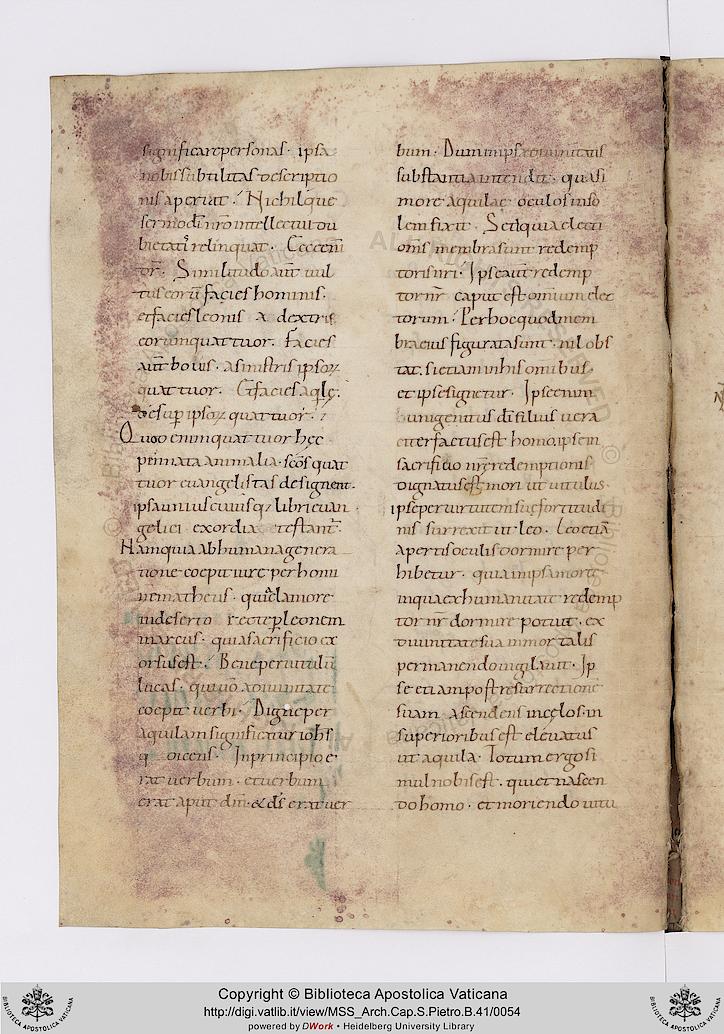 significare personas· ipsa
nobis subtilitas descriptio
nis aperuit· Nichilque
sermodī nr̄o intellectui du
bietatī relinquat· Ecceenī
dr̄· Similitudo aut̄ uul
tus eorū facies hominis·
et facies leonis a dextris
eorum quattuor· Facies
aut̄ bouis· a sinistris ipsoꝝ
quattuor· Et facies aqⁱlę·
desup ipsoꝝ quattuor·
Quod enim quattuor hęc
pennata animalia· scōs quat
tuor euangelistas designent·
ipsa uniuscuiusq; libri euan
gelici exordia testant̄·
Nam quia ab humana genera
tione coepit iure per homi
nem matheus· quia clamore
in deserto recte per leonem
marcus· quia sacrificio ex
orsus est· Bene per uitulū
lucas· qui uō a diuinitate
coepit uerbi· Digne per
aquilam significatur iohs̄
q dicens· In principio e
rat uerbum· et uerbum
erat aput dm̄· & ds̄ erat uer
bum· Dum in ipsa diuinitatis
substantia intendit· quasi
more aquilae oculos in so
lem fixit· Sed quia electi
om̄s membra sunt redemp
toris nr̄i· Ipse aut̄ redemp
tor nr̄ caput est omnium elec
torum· Per hoc quod mem
bra eius figurata sunt· nil obs
tat· si etiam in his omibus·
et ipse signetur· Ipse enim
unigenitus dī filius uera
citer factus est homo. ipse in
sacrificio nr̄ę redemptionis·
dignatus est mori ut uitulus·
ipse per uirtutem suę fortitudi
nis surrexit ut leo· Leo etiā
apertis oculis dormire per
hibetur· quia in ipsa morte·
in qua ex humanitate redemp
tor nr̄ dormire potuit· ex
diuinitate sua inmortalis
permanendo uigilauit· Ip
se etiam post resurrectionē
suam ascendens in cęlos· in
superioribus est eleuatus
ut aquila· Totum ergo si
mul nobis est· qui et nascen
do homo· et moriendo uitu
Copyright © Biblioteca Apostolica Vaticana
http://digi.vatlib.it/view/MSS_Arch.Cap.S.Pietro.B.41/0054
powered by DWork • Heidelberg University Library